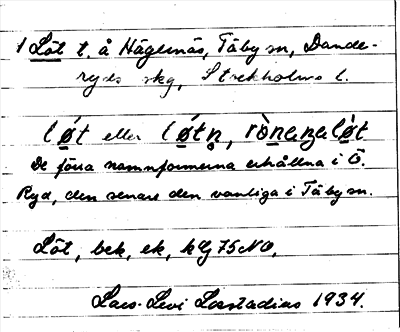 1 Löt t. å Hägernäs, Täby sn, Dande-
ryds skg, Stockholms l.
løt eller løtn̥, rònanaløt
De förra namnformerna erhållna i Ö.
Ryd, den senare den vanliga i Täby sn.
Löt, bek, ek, kbl 75 NO,
Lars-Levi Læstadius 1934.